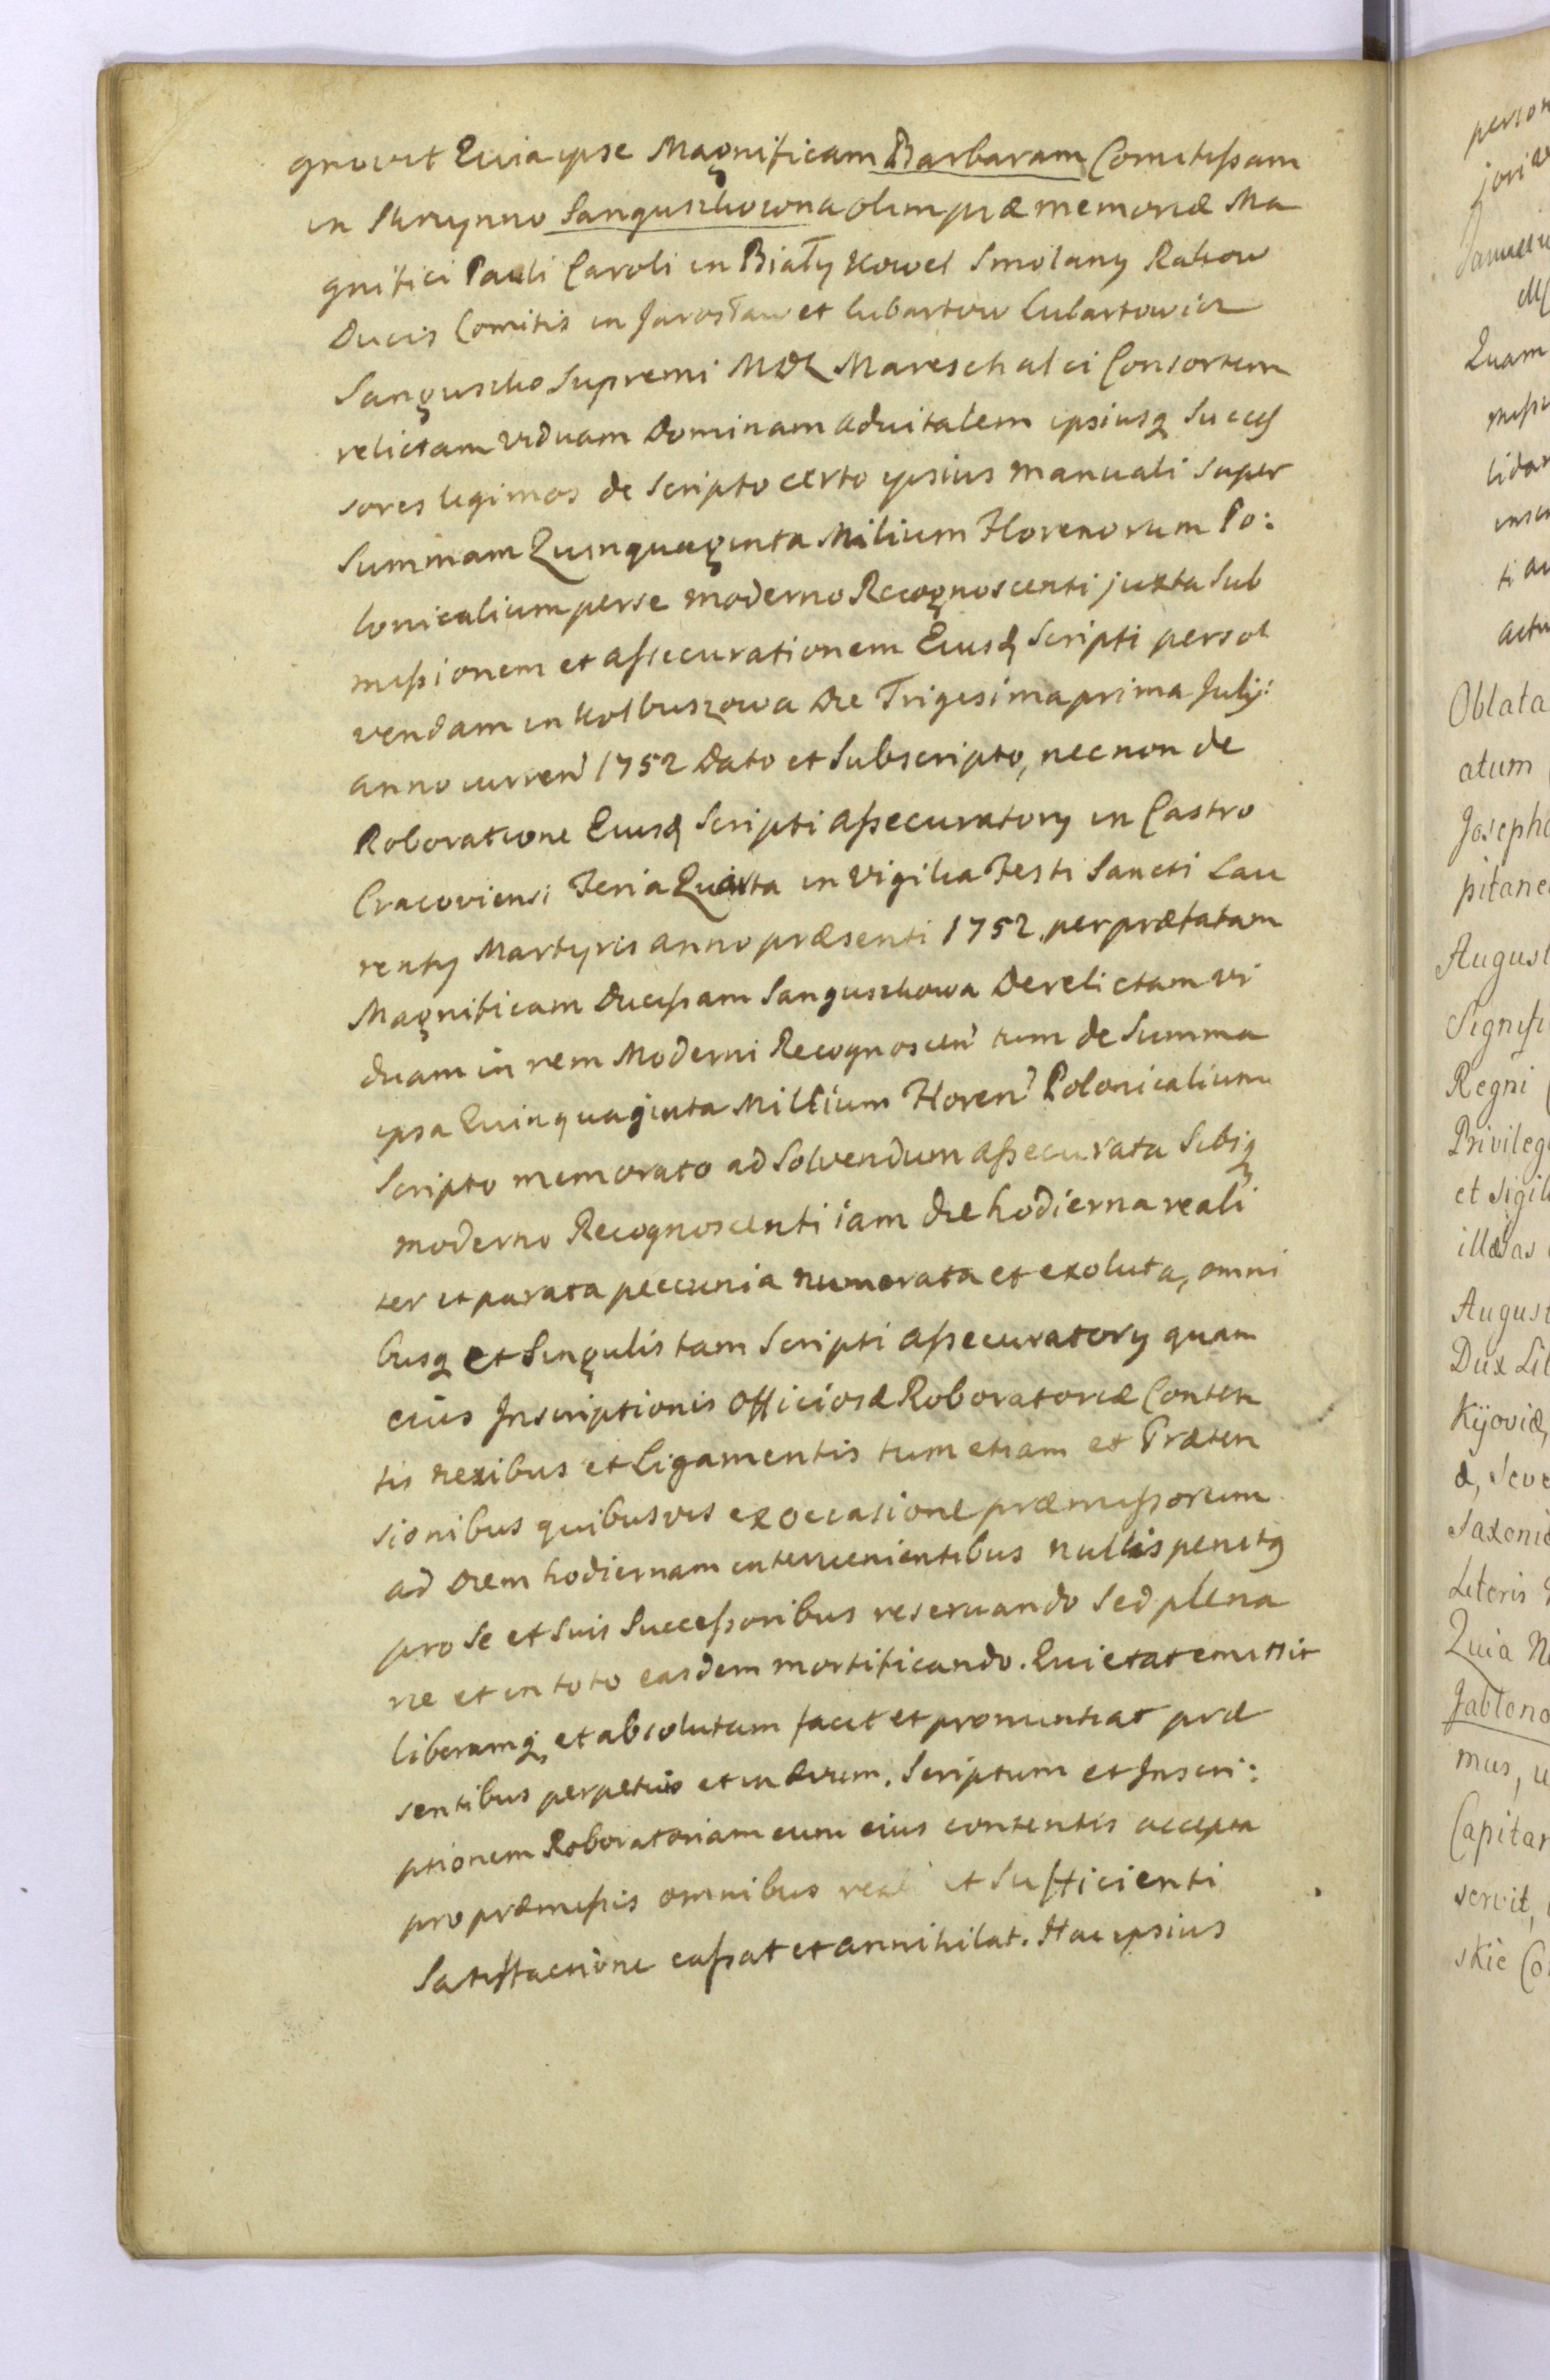 gnovit Quia ipse Magnificam Barbaram Comitissam
in Skrzynno Sanguszkowna olim piæ memoriæ Ma
gnifici Pauli Caroli in Biały Kowel Smolany Rakow
Ducis Comitis in Jarosław et Lubartow Lubartowicz
Sanguszko Supremi MDL Mareschalci Consortem
relictam viduam Dominam advitalem ipsiusq Succes
sores legimos de Scripto certo ipsius manuali super
Summam Quinquaginta Milium Florenorum Po:
lonicalium per se moderno Recognoscenti juxta Sub
missionem et assecurationem Eiusd Scripti persol
vendam in Kolbuszowa Die Trigesima prima Julij:
anno curren 1752 Dato et Subscripto, nec non de
Roboratione Eiusd Scripti assecuratory in Castro
Cracoviensi Feria Quarta in Vigilia Festi Sancti Lau
renty Martyris anno præsenti 1752. per præfatam
Magnificam Ducissam Sanguszkowa Derelictam vi
duam in rem Moderni Recognoscen tum de Summa
ipsa Quinquaginta Millium Floren Polonicalium
Scripto memorato ad Solvendum assecurata Sibiq
moderno Recognoscenti iam die hodierna reali
ter et parata peccunia numerata et exoluta, omni
busq et Singulis tam Scripti assecuratory quam
eius Inscriptionis Officiosæ Roboratoriæ Conten
tis nexibus et Ligamentis tum etiam et Præten
sionibus quibusvis ex occasione præmissorum
ad Diem hodiernam intervenientibus nullis penitg
pro Se et Suis Successoribus reservando Sed plena
rie et in toto easdem mortificando. Quietat emittit
liberamq, et absolutam facit et pronuntiat præ
sentibus perpetuis et in ævum, Scriptum et Inscri:
ptionem Roboratoriam cum eius contentis accepta
pro præmissis omnibus reali et Sufficienti
Satisfactione cassat et annihilat. Hac ipsius